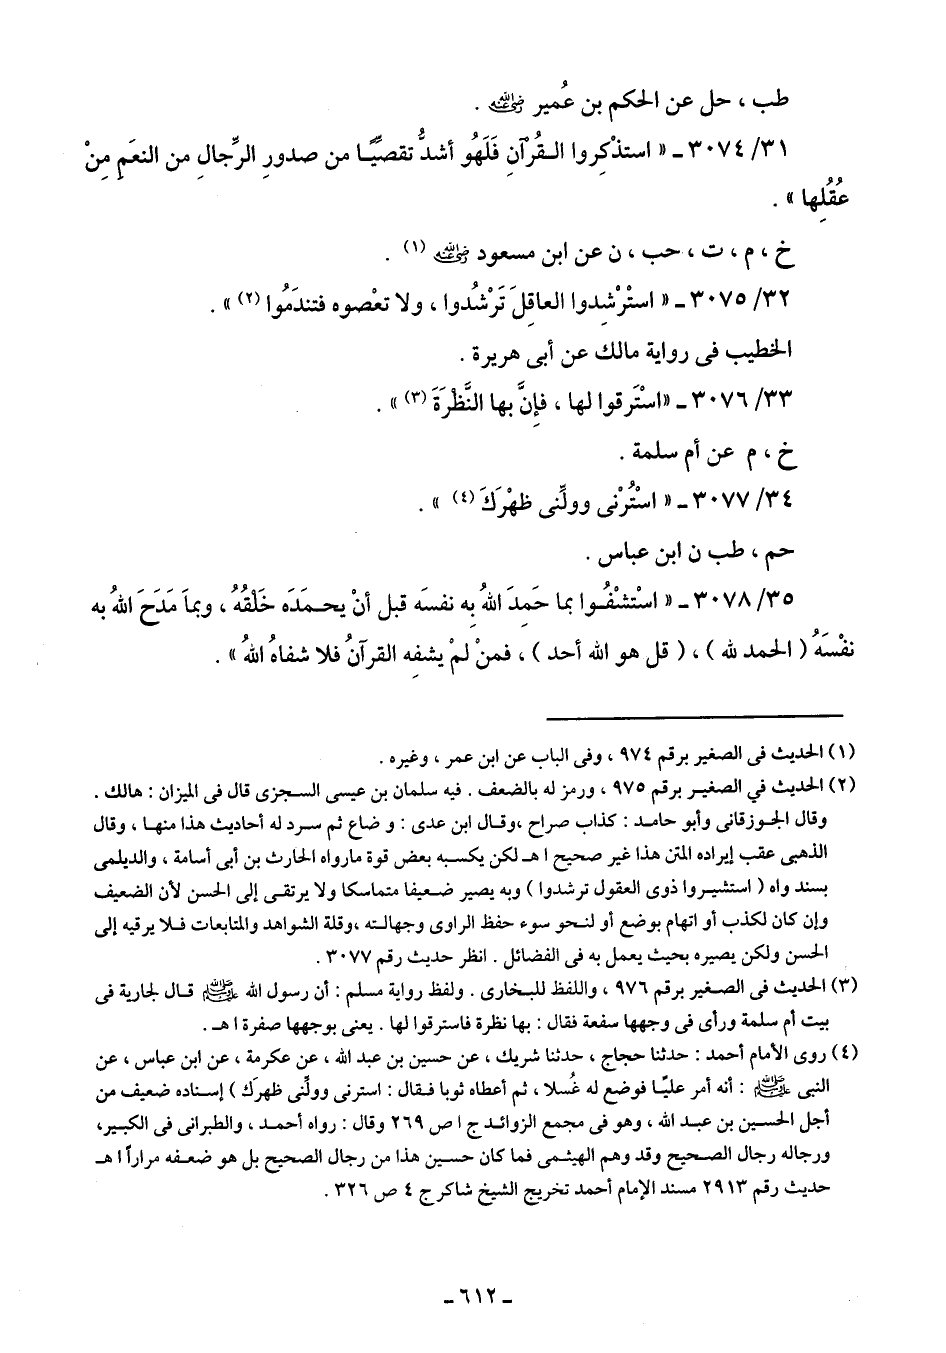 طب ، حل عن الحكم بن عُمير رضي الله عنه .
٣١/ ٣٠٧٤ ـ « استذْكِروا القُرآنِ فَلَهُو أشدُّ تقصيًّا من صدورِ الرِّجالِ من النعَمِ مِنْ
عُقُلِها » .
خ ، م ، ت ، حب ، ن عن ابن مسعود رضي الله عنه (١) .
٣٢/ ٣٠٧٥ ـ « استْرشِدوا العاقِلَ تَرْشُدوا ، ولا تعْصوه فتندَمُوا (٢) » .
الخطيب فى رواية مالك عن أبى هريرة .
٣٣/ ٣٠٧٦ ـ «اسْتَرقوا لها ، فإنَّ بها النَّظْرَةَ (٣) » .
خ ، م عن أم سلمة .
٣٤/ ٣٠٧٧ ـ « اسْتُرْنى وولِّنى ظهْرَكَ (٤) » .
حم ، طب ن ابن عباس .
٣٥/ ٣٠٧٨ ـ « اسْتشْفُوا بما حَمِدَ اللهُ بِه نفسَه قبل أنْ يحمَدَه خَلْقُهُ ، وبماَ مَدَحَ اللهُ به
نفْسَهُ ( الحمد لله ) ، ( قل هو الله أحد ) ، فمنْ لمْ يشفِه القرآنُ فلا شفاهُ اللهُ » .
(١) الحديث فى الصغير برقم ٩٧٤ ، وفى الباب عن ابن عمر ، وغيره .
(٢) الحديث في الصغير برقم ٩٧٥ ، ورمز له بالضعف . فيه سلمان بن عيسى السجزى قال فى الميزان : هالك .
وقال الجوزقانى وأبو حامد : كذاب صراح ،وقال ابن عدى : وضاع ثم سرد له أحاديث هذا منها ، وقال
الذهبى عقب إيراده المتن هذا غير صحيح اهـ لكن يكسبه بعض قوة مارواه الحارث بن أبى أسامة ، والديلمى
بسند واه ( استشيروا ذوى العقول ترشدوا ) وبه يصير ضعيفا متماسكا ولا يرتقى إلى الحسن لأن الضعيف
وإن كان لكذب أو اتهام بوضع أو لنحو سوء حفظ الراوى وجهالته ،وقلة الشواهد والمتابعات فلا يرقيه إلى
الحسن ولكن يصيره بحيث يعمل به فى الفضائل . انظر حديث رقم ٣٠٧٧ .
(٣) الحديث فى الصغير برقم ٩٧٦ ، واللفظ للبخارى . ولفظ رواية مسلم : أن رسول الله ﷺ قال لجارية فى
بيت أم سلمة ورأى فى وجهها سفعة فقال : بها نظرة فاسترقوا لها . يعنى بوجهها صفرة اهـ .
(٤) روى الأمام أحمد : حدثنا حجاج ، حدثنا شريك ، عن حسين بن عبد الله ، عن عكرمة ، عن ابن عباس ، عن
النبى ﷺ : أنه أمر عليّا فوضع له غُسلا ، ثم أعطاه ثوبا فقال : استرنى وولِّنى ظهرَك ) إسناده ضعيف من
أجل الحسين بن عبد الله ، وهو فى مجمع الزوائد ج ا ص ٢٦٩ وقال : رواه أحمد ، والطبرانى فى الكبير،
ورجاله رجال الصحيح وقد وهم الهيثمى فما كان حسين هذا من رجال الصحيح بل هو ضعفه مراراً اهـ
حديث رقم ٢٩١٣ مسند الإمام أحمد تخريج الشيخ شاكر ج ٤ ص ٣٢٦ .
ـ ٦١٢ ـ